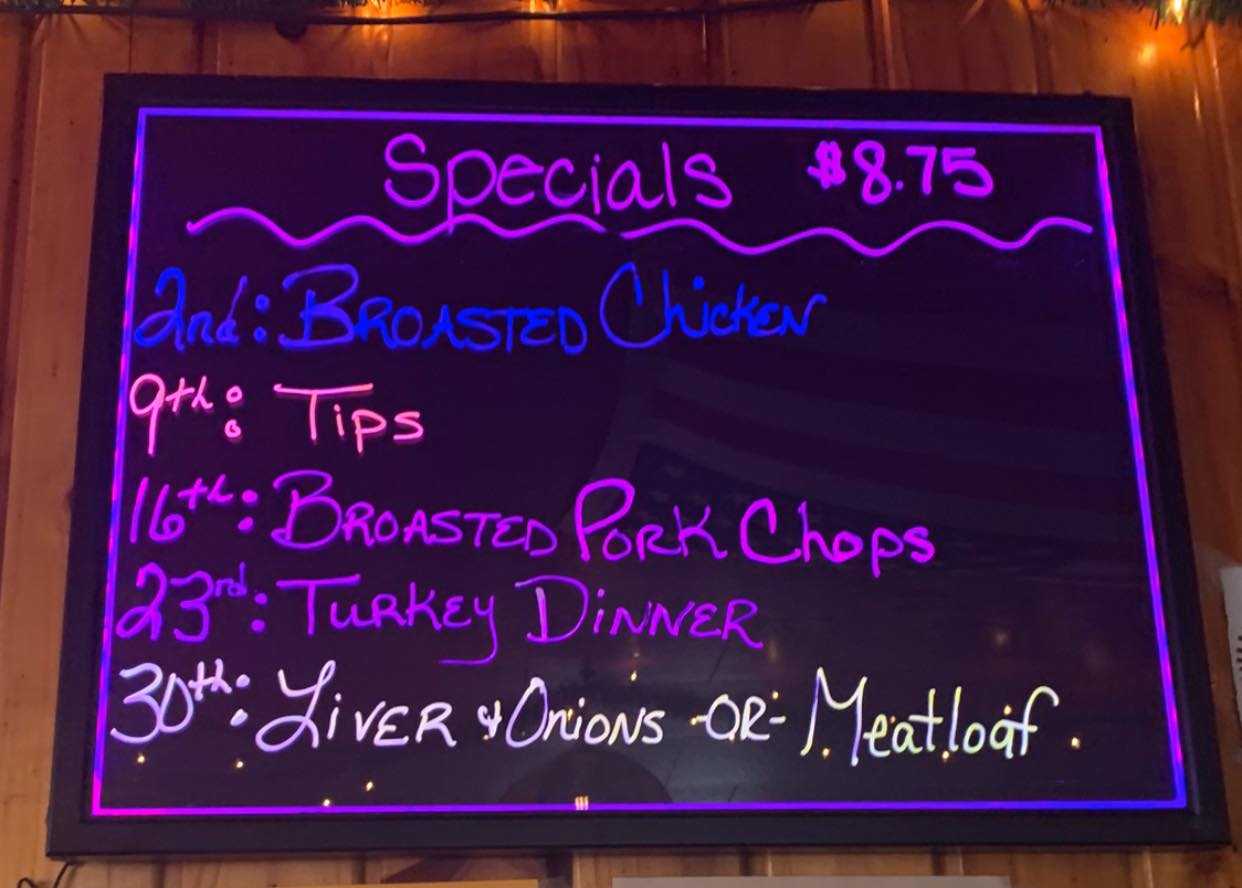 Specials $8.75
2nd: BROASTED ChicKEN
9th: TiPS
16th: BROASTED PORK Chops
23rd: TURKEY DiNNER
30th: LiVER & ONiONS -OR- Meatloaf.